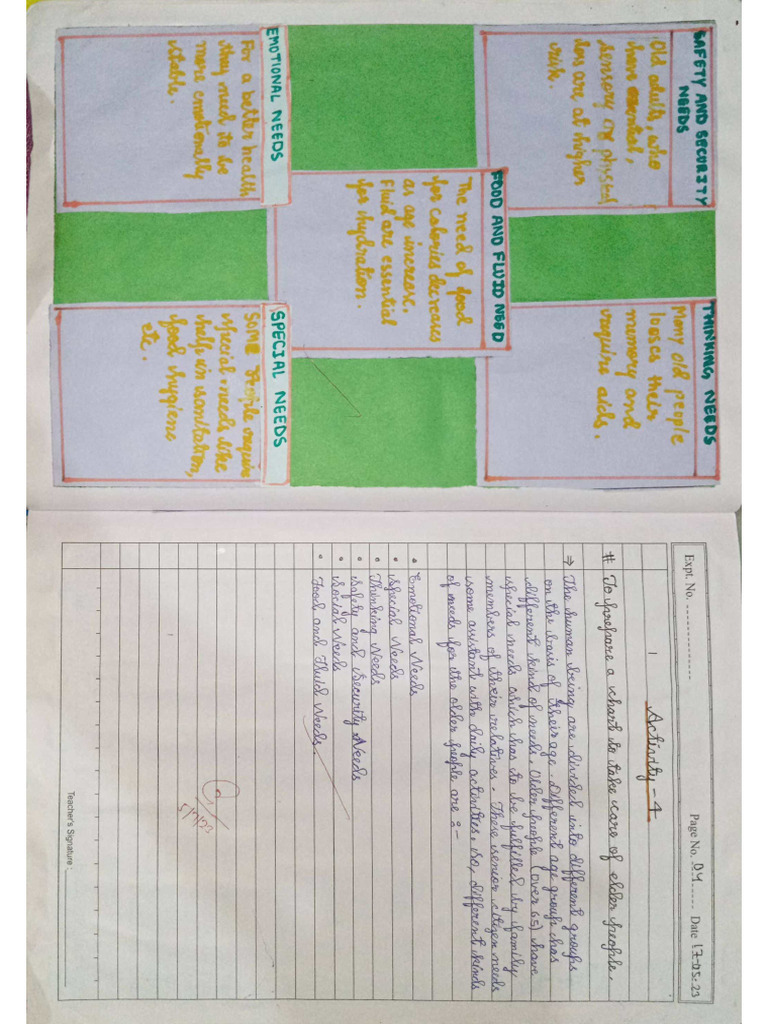 SAFETY AND SECURITY
NEEDS
Old adults, who
have essential,
sensory or physical
loss are at higher
risk.
THINKING NEEDS
Many old people
looses their
memory and
require aids.
FOOD AND FLUID NEED
The need of food
for calories decreases
as age increase.
Fluid are essential
for hydration.
EMOTIONAL NEEDS
For a better health
they need to be
more emotionally
stable.
SPECIAL NEEDS
SOME People require
special needs like
help in sanitation,
good hygiene
etc.
Expt. No.
Page No. 04
Date 17-05-23
Activity - 4
# To prepare a chart to take care of elder people.
⇒ The human being are divided into different groups
on the basis of their age. Different age group has
different kind of needs. Older people (over 65) have
special needs which has to be fulfilled by family
members of their relatives. These senior citizen needs
some assistant with daily activities. So, different kinds
of needs for the older people are :-
• Emotional Needs
• Special Needs
• Thinking Needs
• Safety and Security Needs
• Social Needs
• Food and Fluid Needs.
Teacher's Signature :